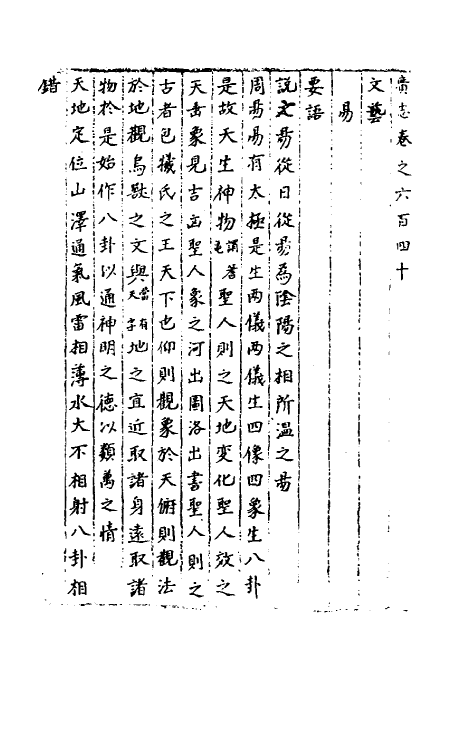 廣志卷之六百四十
文藝
易
要語
説文易從日從易爲陰陽之相所温之易
周易易有太極是生兩儀兩儀生四像四象生八卦
是故天生神物謂蓍龜聖人則之天地變化聖人效之
天垂象見吉凶聖人象之河出圖洛出書聖人則之
古者包犧氏之王天下也仰則觀象於天俯則觀法
於地觀鳥獸之文與當有天字地之宜近取諸身遠取諸
物於是始作八卦以通神明之德以類萬之情
天地定位山澤通氣風雷相薄水火不相射八卦相
錯